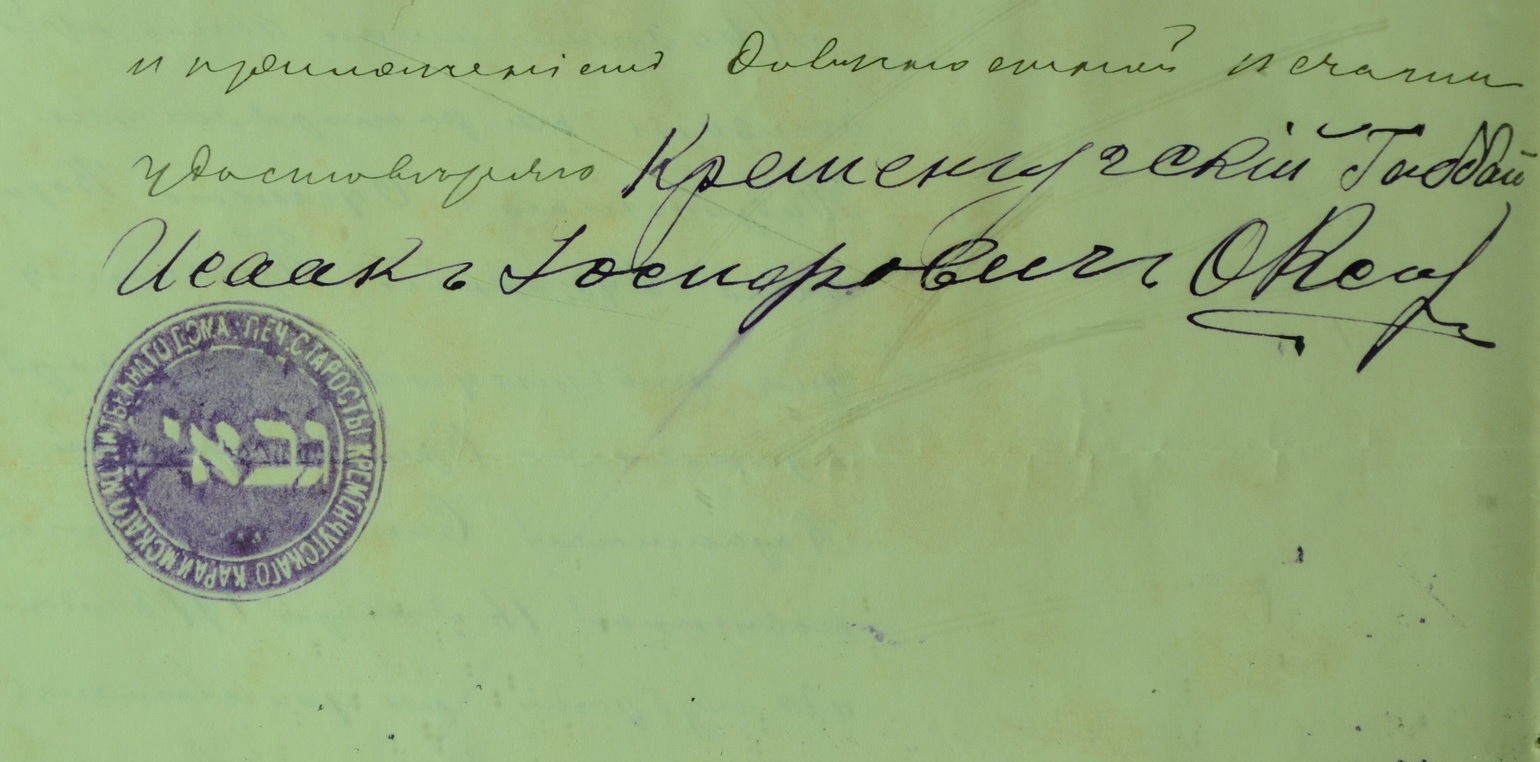 и приложеніемъ должностной печати
удостовѣряю Кременчугскій Габбай
Исаакъ Іосифовичъ
ПЕЧ. СТАРОСТЫ КРЕМЕНЧУГСКАГО КАРАИМСКАГО МОЛИТВЕННАГО ДОМА